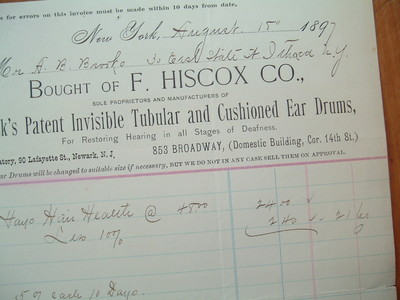 s for errors on this invoice must be made within 10 days from date.
New York, August 15th 1897
Mr A. B. Brooks 30 East State St Ithaca N.Y.
BOUGHT OF F. HISCOX CO.,
SOLE PROPRIETORS AND MANUFACTURERS OF
k's Patent Invisible Tubular and Cushioned Ear Drums,
For Restoring Hearing in all Stages of Deafness.
atory, 90 Lafayette St., Newark, N. J.
853 BROADWAY, (Domestic Building, Cor. 14th St.)
ar Drums will be changed to suitable size if necessary, BUT WE DO NOT IN ANY CASE SELL THEM ON APPROVAL.
Hays Hair Health @ 48.00 24 00
Less 10% 2 40 21 60
5% cash 10 Days.